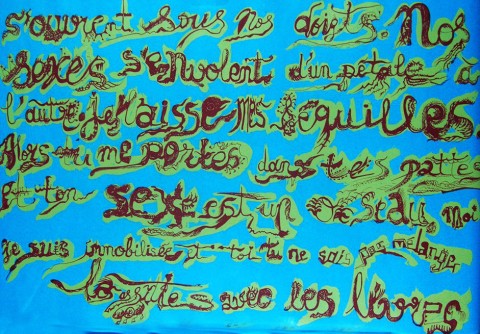 s'ouvrent sous nos doigts. Nos
sexes s'envolent d'un pétale à
l'autre je laisse mes béquilles.
Alors tu me portes dans tes pattes
Et ton sexe est un oiseau. Moi
Je suis immobilisée et toi tu ne sais pas mélanger
les avec les